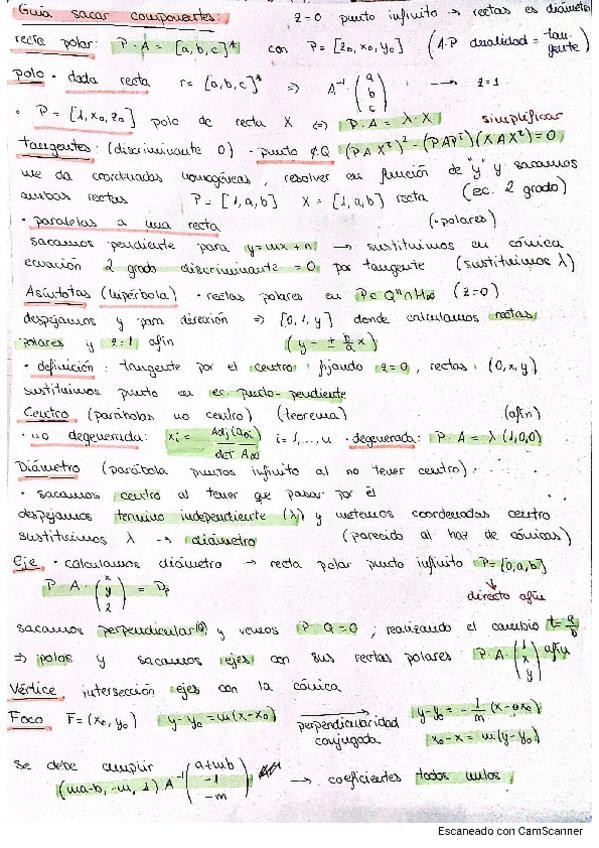 Guía sacar componentes: z=0 punto infinito → rectas es diámetro
recta polar: P·A = [a,b,c]* con P=[z0,x0,y0] (A·P dualidad = tangente)
polo · dada recta r=[a,b,c]* ⇒ A⁻¹·(a b c) → z=1.
· P=[1,x0,z0] polo de recta X ⇔ P·A = λ·X simplificar
tangentes · (discriminante 0) - punto ∉Q (PAXᵗ)² - (PAPᵗ)(XAXᵗ)=0
me da coordenadas homogéneas, resolver en función de "y" y sacamos
ambas rectas P=[1,a,b] X=[1,a,b] recta (ec. 2 grado)
· paralelas a una recta (· polares)
sacamos pendiente para y=mx+n → sustituimos en cónica
ecuación 2 grado discriminante = 0 por tangente (sustituimos λ)
Asíntotas (hipérbola) · rectas polares en P∈Qⁿ∩H∞ (z=0)
despejamos y para dirección ⇒ [0,1,y] donde calculamos rectas
polares y z=1 afín (y = ± b/a x)
· definición: tangente por el centro fijando z=0, rectas (0,x,y)
sustituimos punto en ec punto-pendiente
Centro (parábolas no centro) (teorema) (afín)
· no degenerada: xi = Adj(a0i)/det A00 i=1,...,n · degenerada: P·A=λ(1,0,0)
Diámetro (parábola puntos infinito al no tener centro)
· sacamos centro al tener que pasar por él
despejamos termino independiente (λ) y metemos coordenadas centro
sustituimos λ → diámetro (parecido al haz de cónicas)
Eje · calculamos diámetro → recta polar punto infinito P=[0,a,b]
P·A·(x y z) = Dp directo afín
sacamos perpendicular(Q) y vemos P·Q=0, realizando el cambio t=a/b
⇒ polos y sacamos ejes con sus rectas polares P·A·(1 x y) afín
Vértice, intersección ejes con la cónica
Foco F=(x0,y0) y-y0=m(x-x0) → perpendicularidad conjugada y-y0=-1/m(x-x0)
x0-x=m(y-y0)
se debe cumplir (ma-b,-m,1)A⁻¹(a+mb -1 -m) → coeficientes todos nulos.
Escaneado con CamScanner